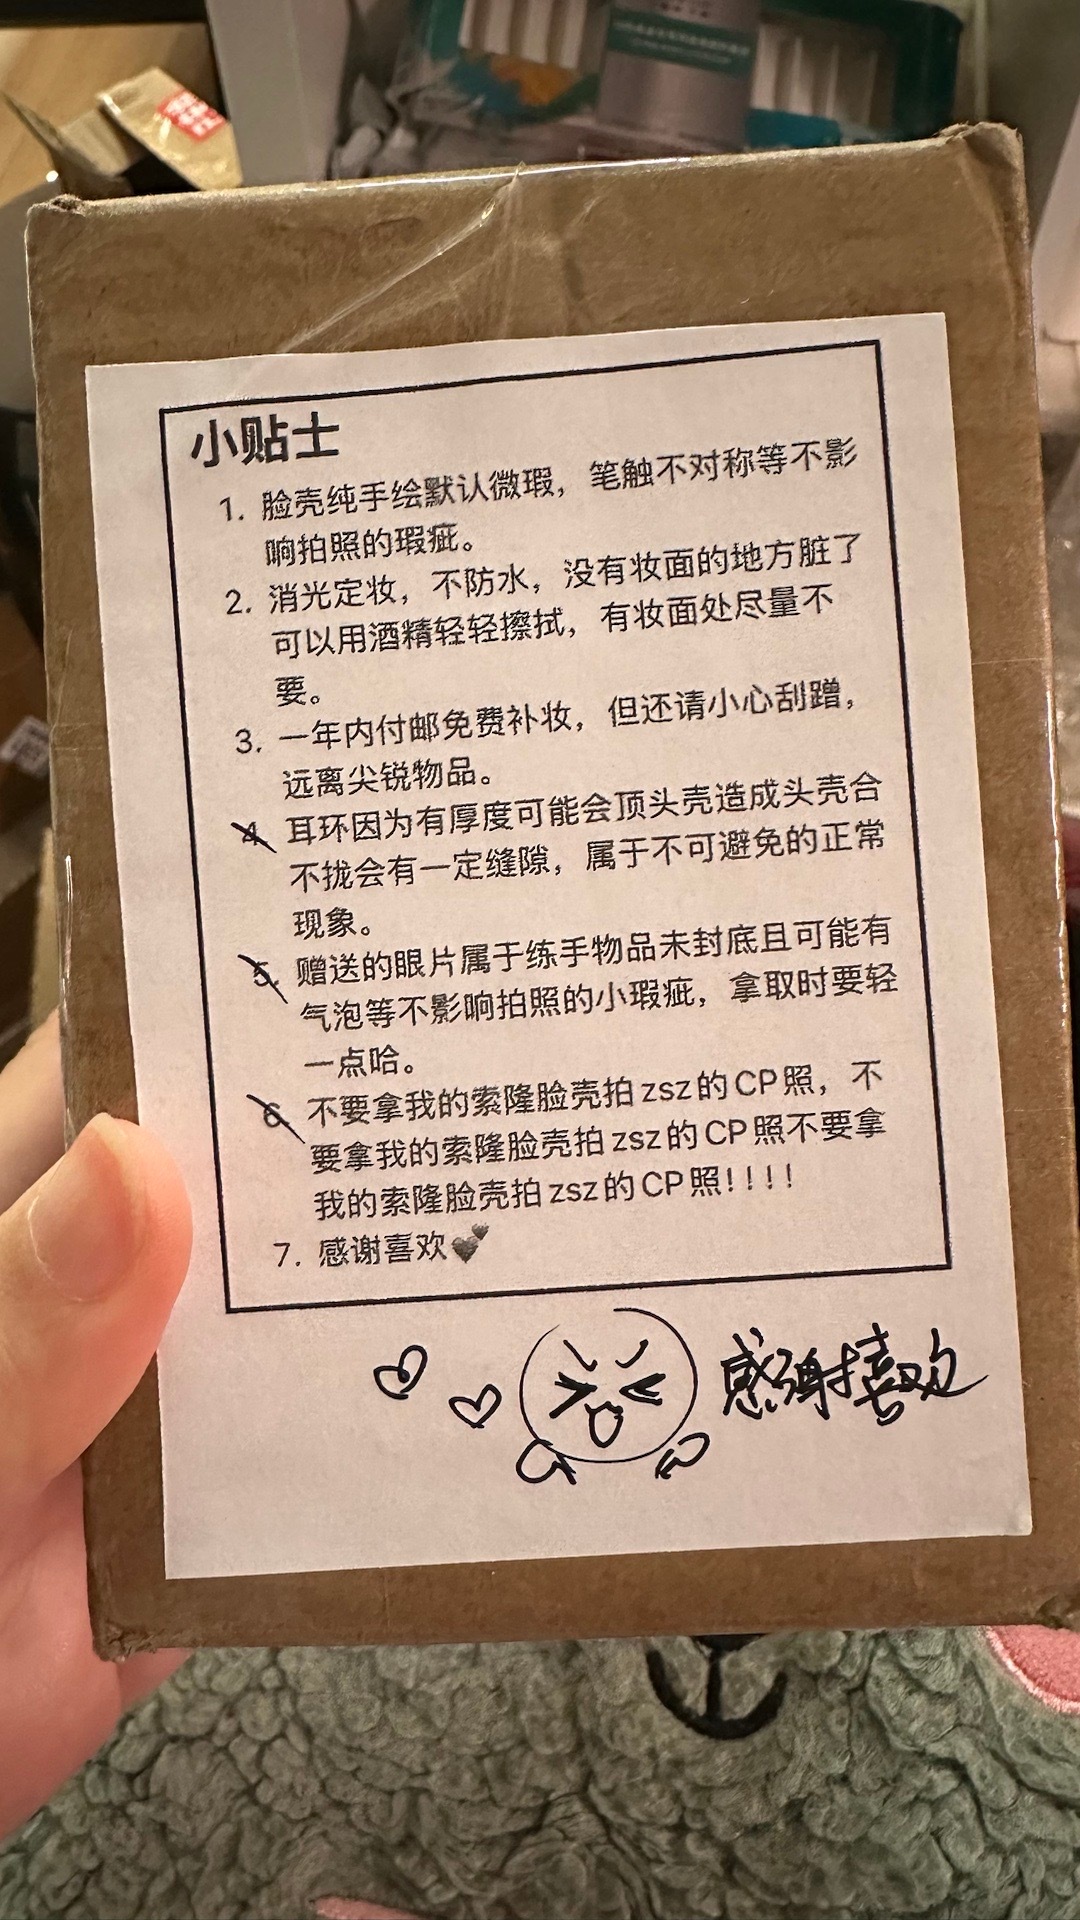 小贴士
1. 脸壳纯手绘默认微瑕，笔触不对称等不影
响拍照的瑕疵。
2. 消光定妆，不防水，没有妆面的地方脏了
可以用酒精轻轻擦拭，有妆面处尽量不
要。
3. 一年内付邮免费补妆，但还请小心刮蹭，
远离尖锐物品。
4. 耳环因为有厚度可能会顶头壳造成头壳合
不拢会有一定缝隙，属于不可避免的正常
现象。
5. 赠送的眼片属于练手物品未封底且可能有
气泡等不影响拍照的小瑕疵，拿取时要轻
一点哈。
6. 不要拿我的索隆脸壳拍zsz的CP照，不
要拿我的索隆脸壳拍zsz的CP照不要拿
我的索隆脸壳拍zsz的CP照！！！！
7. 感谢喜欢💕
感谢喜欢